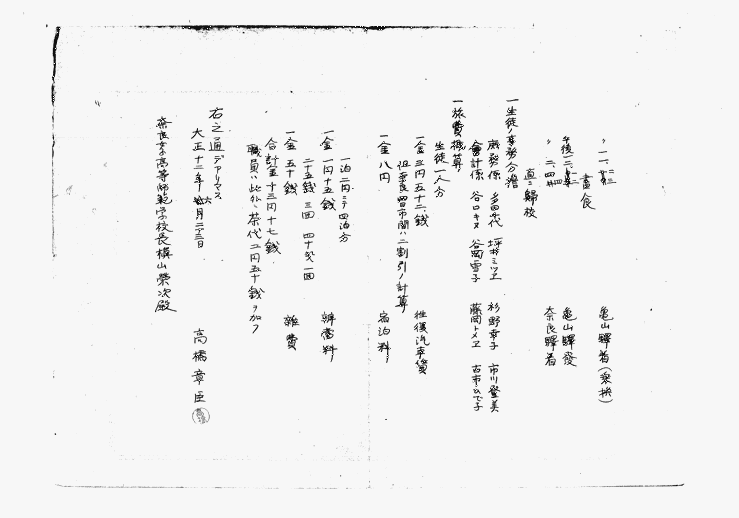 〃 一一、 亀山驛着(乗換)
晝食
午後一二、 亀山驛發
〃 二、四 奈良驛着
直ニ歸校
一生徒ノ事務分擔
庶務係 多田千代 坪井ミツヱ 杉野幸子 市川登美
會計係 谷口キヌ 谷岡雪子 藤岡トメヱ 古市ひで子
一旅費概算
生徒一人分
一金三円五十二銭 往復汽車賃
但奈良四日市間ハ二割引ノ計算
一金八円 宿泊料
一泊二円ニテ四泊分
一金一円十五銭 辨當料
二十五銭三回 四十銭一回
一金五十銭 雑費
合計金十三円十七銭
職員ハ此外ニ茶代二円五十銭ヲ加フ
右之通デアリマス
大正十二年六月二三日
高橋章臣
奈良女子高等師範学校長槇山榮次殿